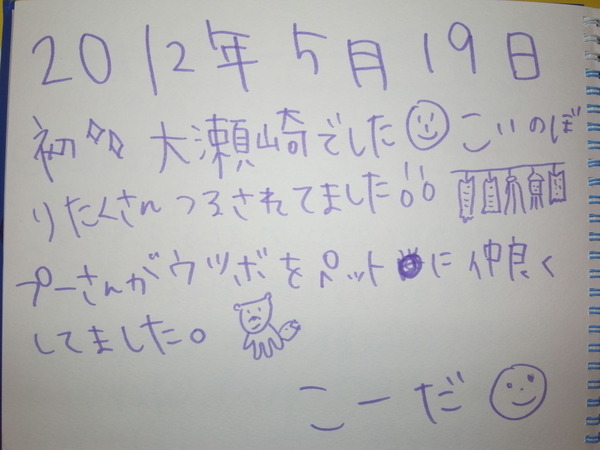 2012年5月19日
初々 大瀬崎でした こいのぼ
りたくさんつるされてました!!
プーさんがウツボをペットに仲良く
してました。
こーだ